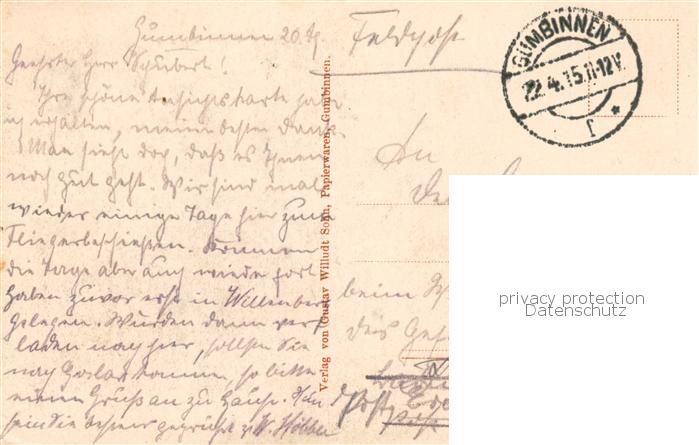 Gumbinnen 20.4.
Feldpost
Geehrter Herr Schubert!
Ihre schöne Ansichtskarte habe
ich erhalten, meinen besten Dank.
Man sieht doch, daß es Ihnen
noch gut geht. Wir sind mal
wieder einige Tage hier zum
Fliegerbeschießen. Können
die Tage aber auch wieder fort
haben zuvor erst in Willenberg
gelegen. Wurden dann ver-
laden nach hier, sollten Sie
nach Goslar kommen, so bitte
einen Gruß an zu Haus.
seien Sie bestens gegrüßt v. W.
GUMBINNEN
22.4.15.11-12V.
f *
An
beim
des
Post
Verlag von Gustav Willudt Sohn, Papierwaren, Gumbinnen.
privacy protection
Datenschutz